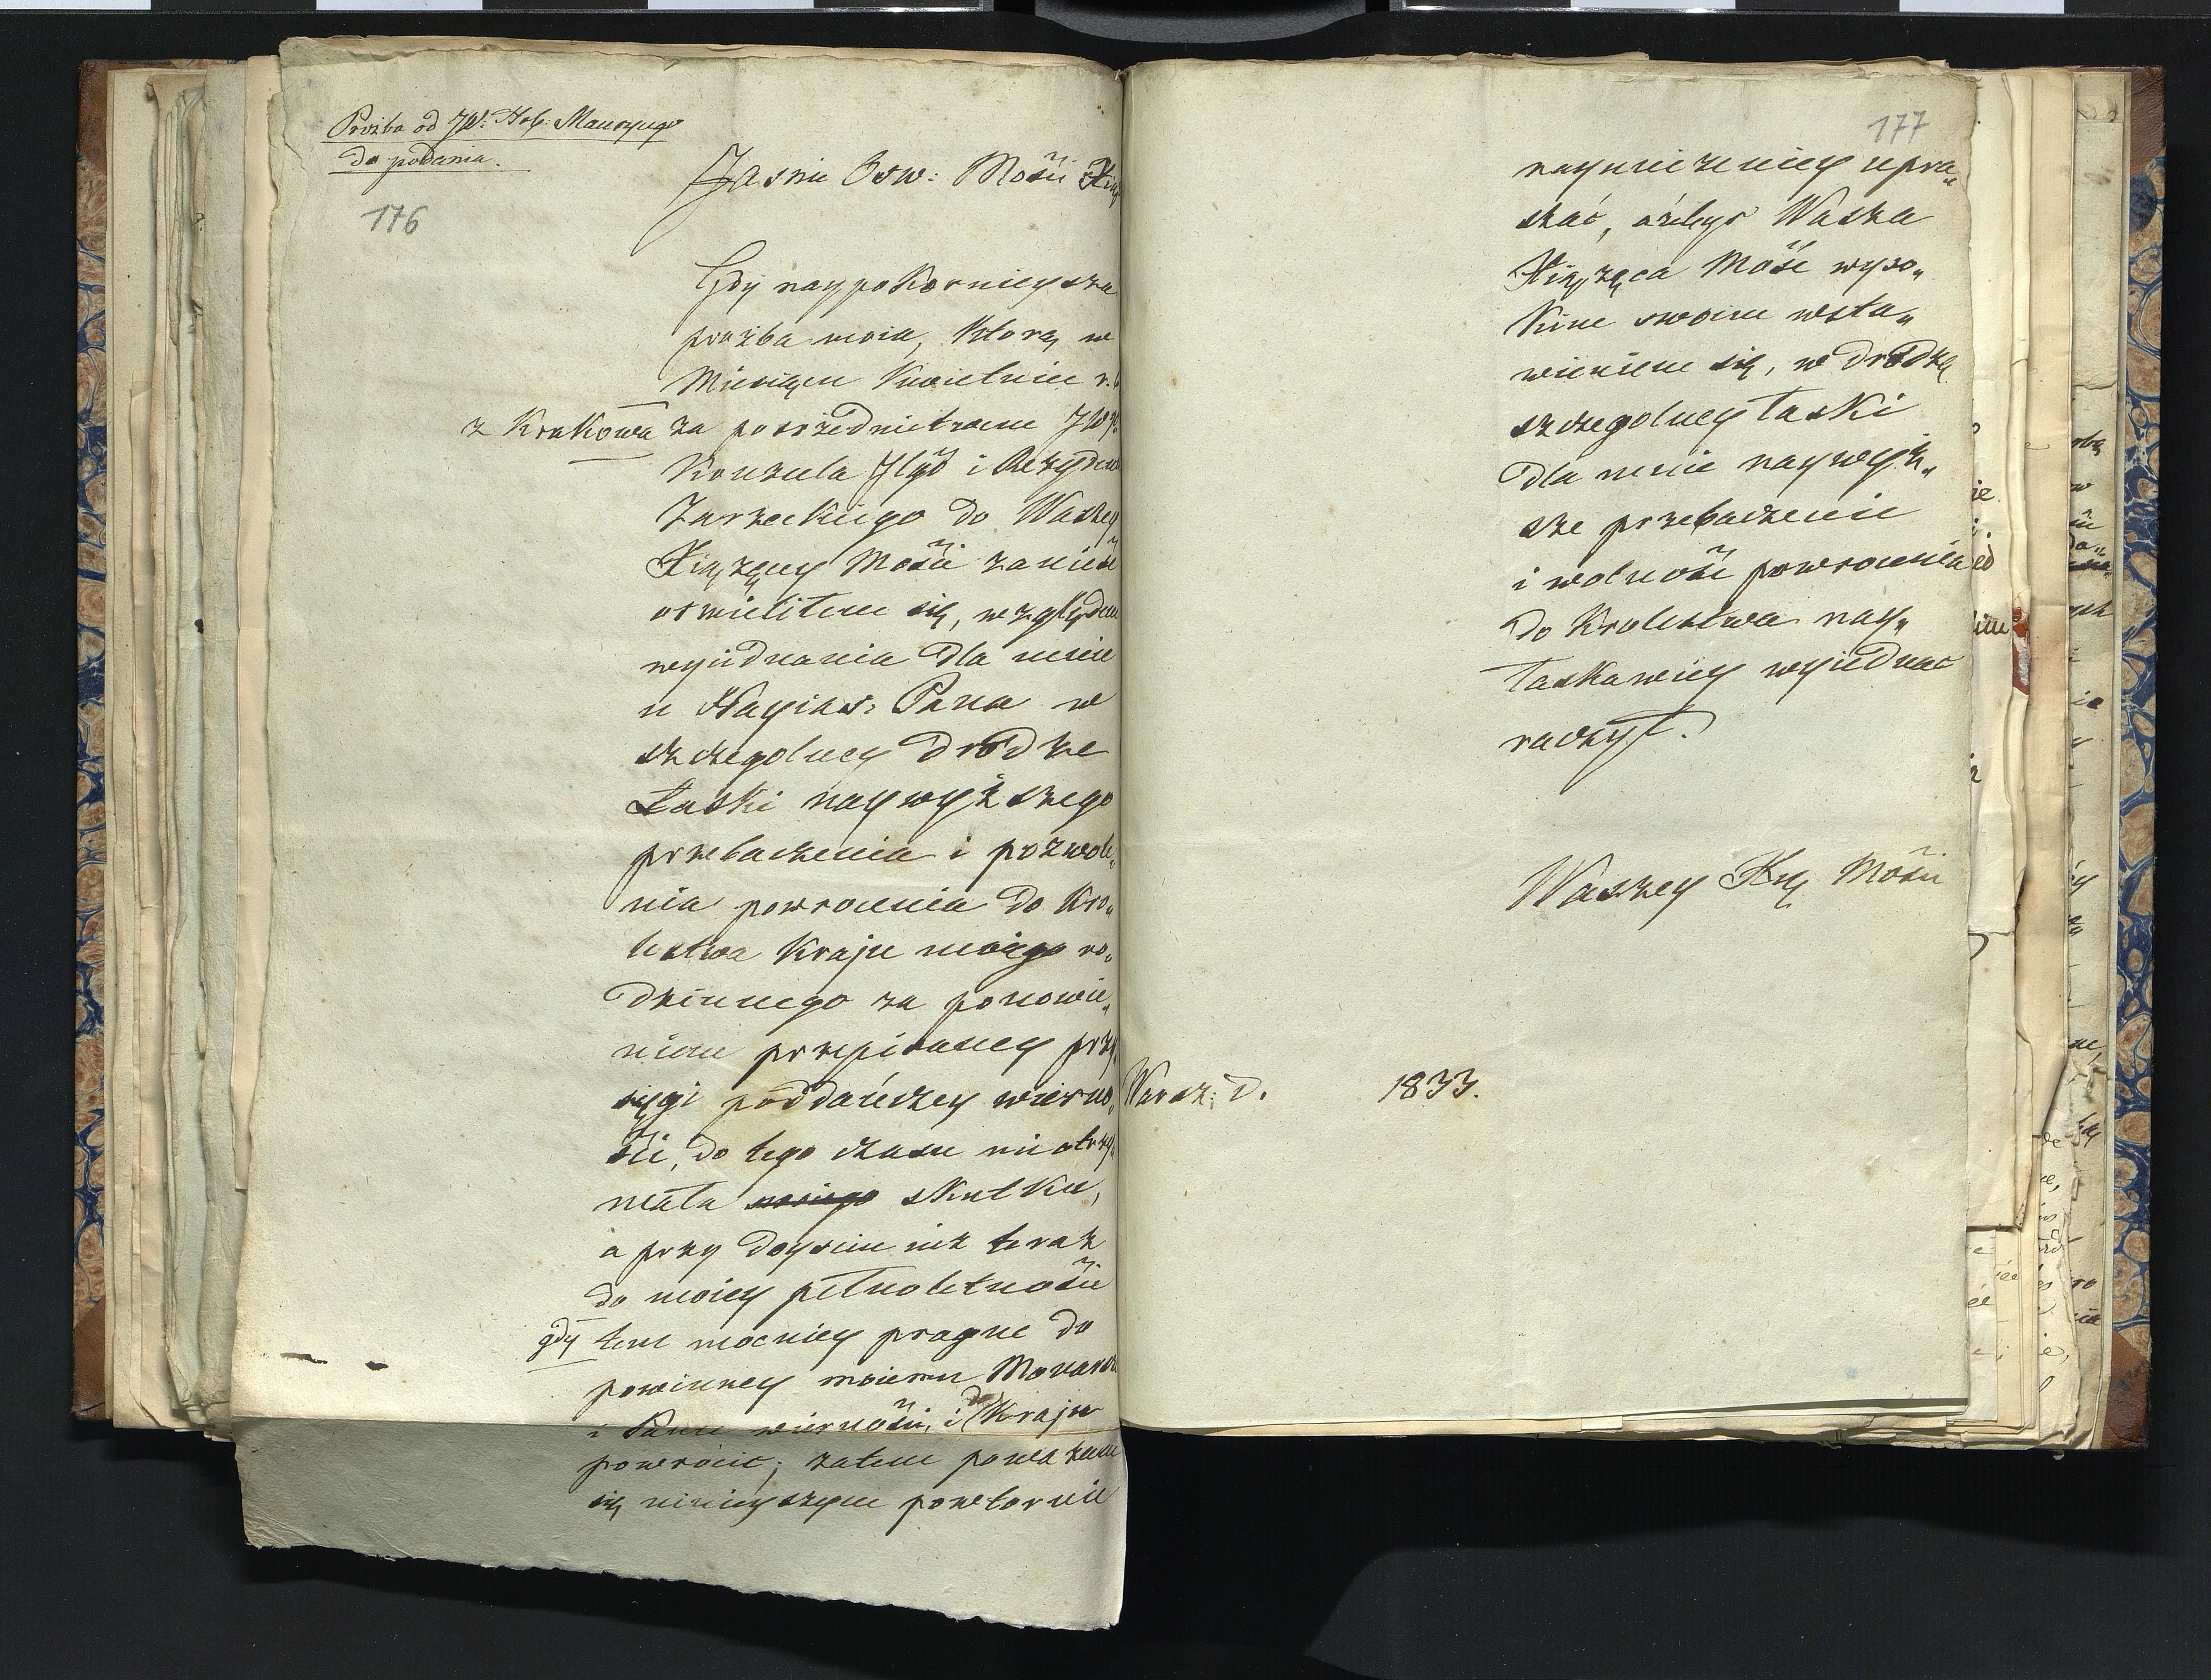 Prozba od JW. Hr: Maurycego
do podania.
176
Jasnie Osw: Mości Xią
Gdy naypokornieysza
prozba moia, którą w
Miesiącu Kwietniu r. b
z Krakowa za posrzednictwem JWgo
Konzula Jlgo i Rezyden
Zarzeckiego do Waszey
Xiążęcey Mości zanieść
osmielitem się, względem
wyiednania dla mnie
u Nayias: Pana w
szczegolney drodze
Łaski naywyższego
przebaczenia i pozwole„
nia powrócenia do Kro„
lestwa Kraju moiego ro„
dzinnego za ponowie„
niem przepisaney przy
sięgi poddańczey wierno„
ści, do tego czasu nie otrzy„
mała moiego skutku,
a przy doyściu iuż teraz
do moiey pełnoletności
gdy tem mocniey pragne do
powinney moiemu Monarsze
i Panu wierności, i do Kraju
powrócić; zatem poważam
się ninieyszem powtornie
177
nayuniżeniey upra„
szać, ażebyś Wasza
Xiążęca Mość wyso„
kiem swoiem wsta„
wieniem się, w drodzę
szczegolney łaski
dla mnie naywyż„
sze przebaczenie
i wolność powrocenia
do Krolestwa nay„
łaskawiey wyiednac
raczył.
Waszey Xcy Mości
Warsz: d. 1833.